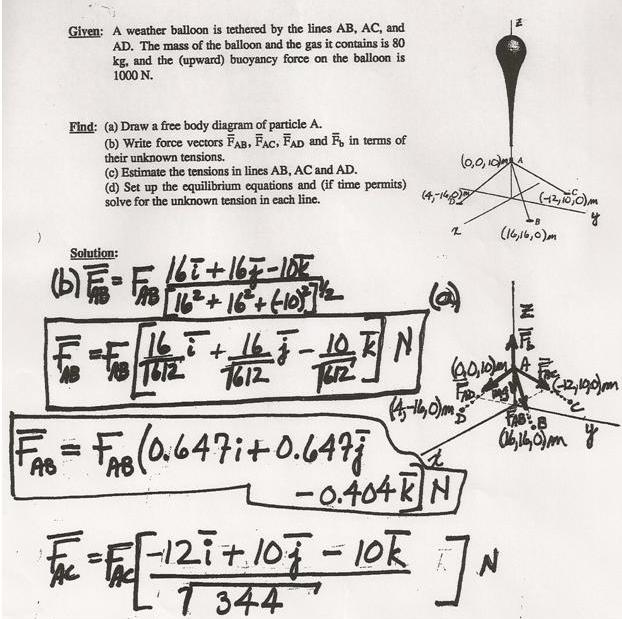 Given: A weather balloon is tethered by the lines AB, AC, and
AD. The mass of the balloon and the gas it contains is 80
kg, and the (upward) buoyancy force on the balloon is
1000 N.
Find: (a) Draw a free body diagram of particle A.
(b) Write force vectors F̅AB, F̅AC, F̅AD and F̅b in terms of
their unknown tensions.
(c) Estimate the tensions in lines AB, AC and AD.
(d) Set up the equilibrium equations and (if time permits)
solve for the unknown tension in each line.
z
(0,0,10)m A
(4,-16,0)m
C
(-12,10,0)m
B
y
(16,16,0)m
Solution:
(b) F̅AB = FAB (16i̅ + 16j̅ - 10k̅) / [16² + 16² + (-10)²]^1/2
F̅AB = FAB [16/√612 i̅ + 16/√612 j̅ - 10/√612 k̅] N
F̅AB = FAB (0.647i + 0.647j̅
- 0.404k̅] N
F̅AC = FAC [(-12i̅ + 10j̅ - 10k̅) / √344] N
(a)
z
F̅b
(0,0,10)m A
F̅AC
F̅AD
mg
(-12,10,0)m
C
(4,-16,0)m
D
F̅AB
B
(16,16,0)m
y